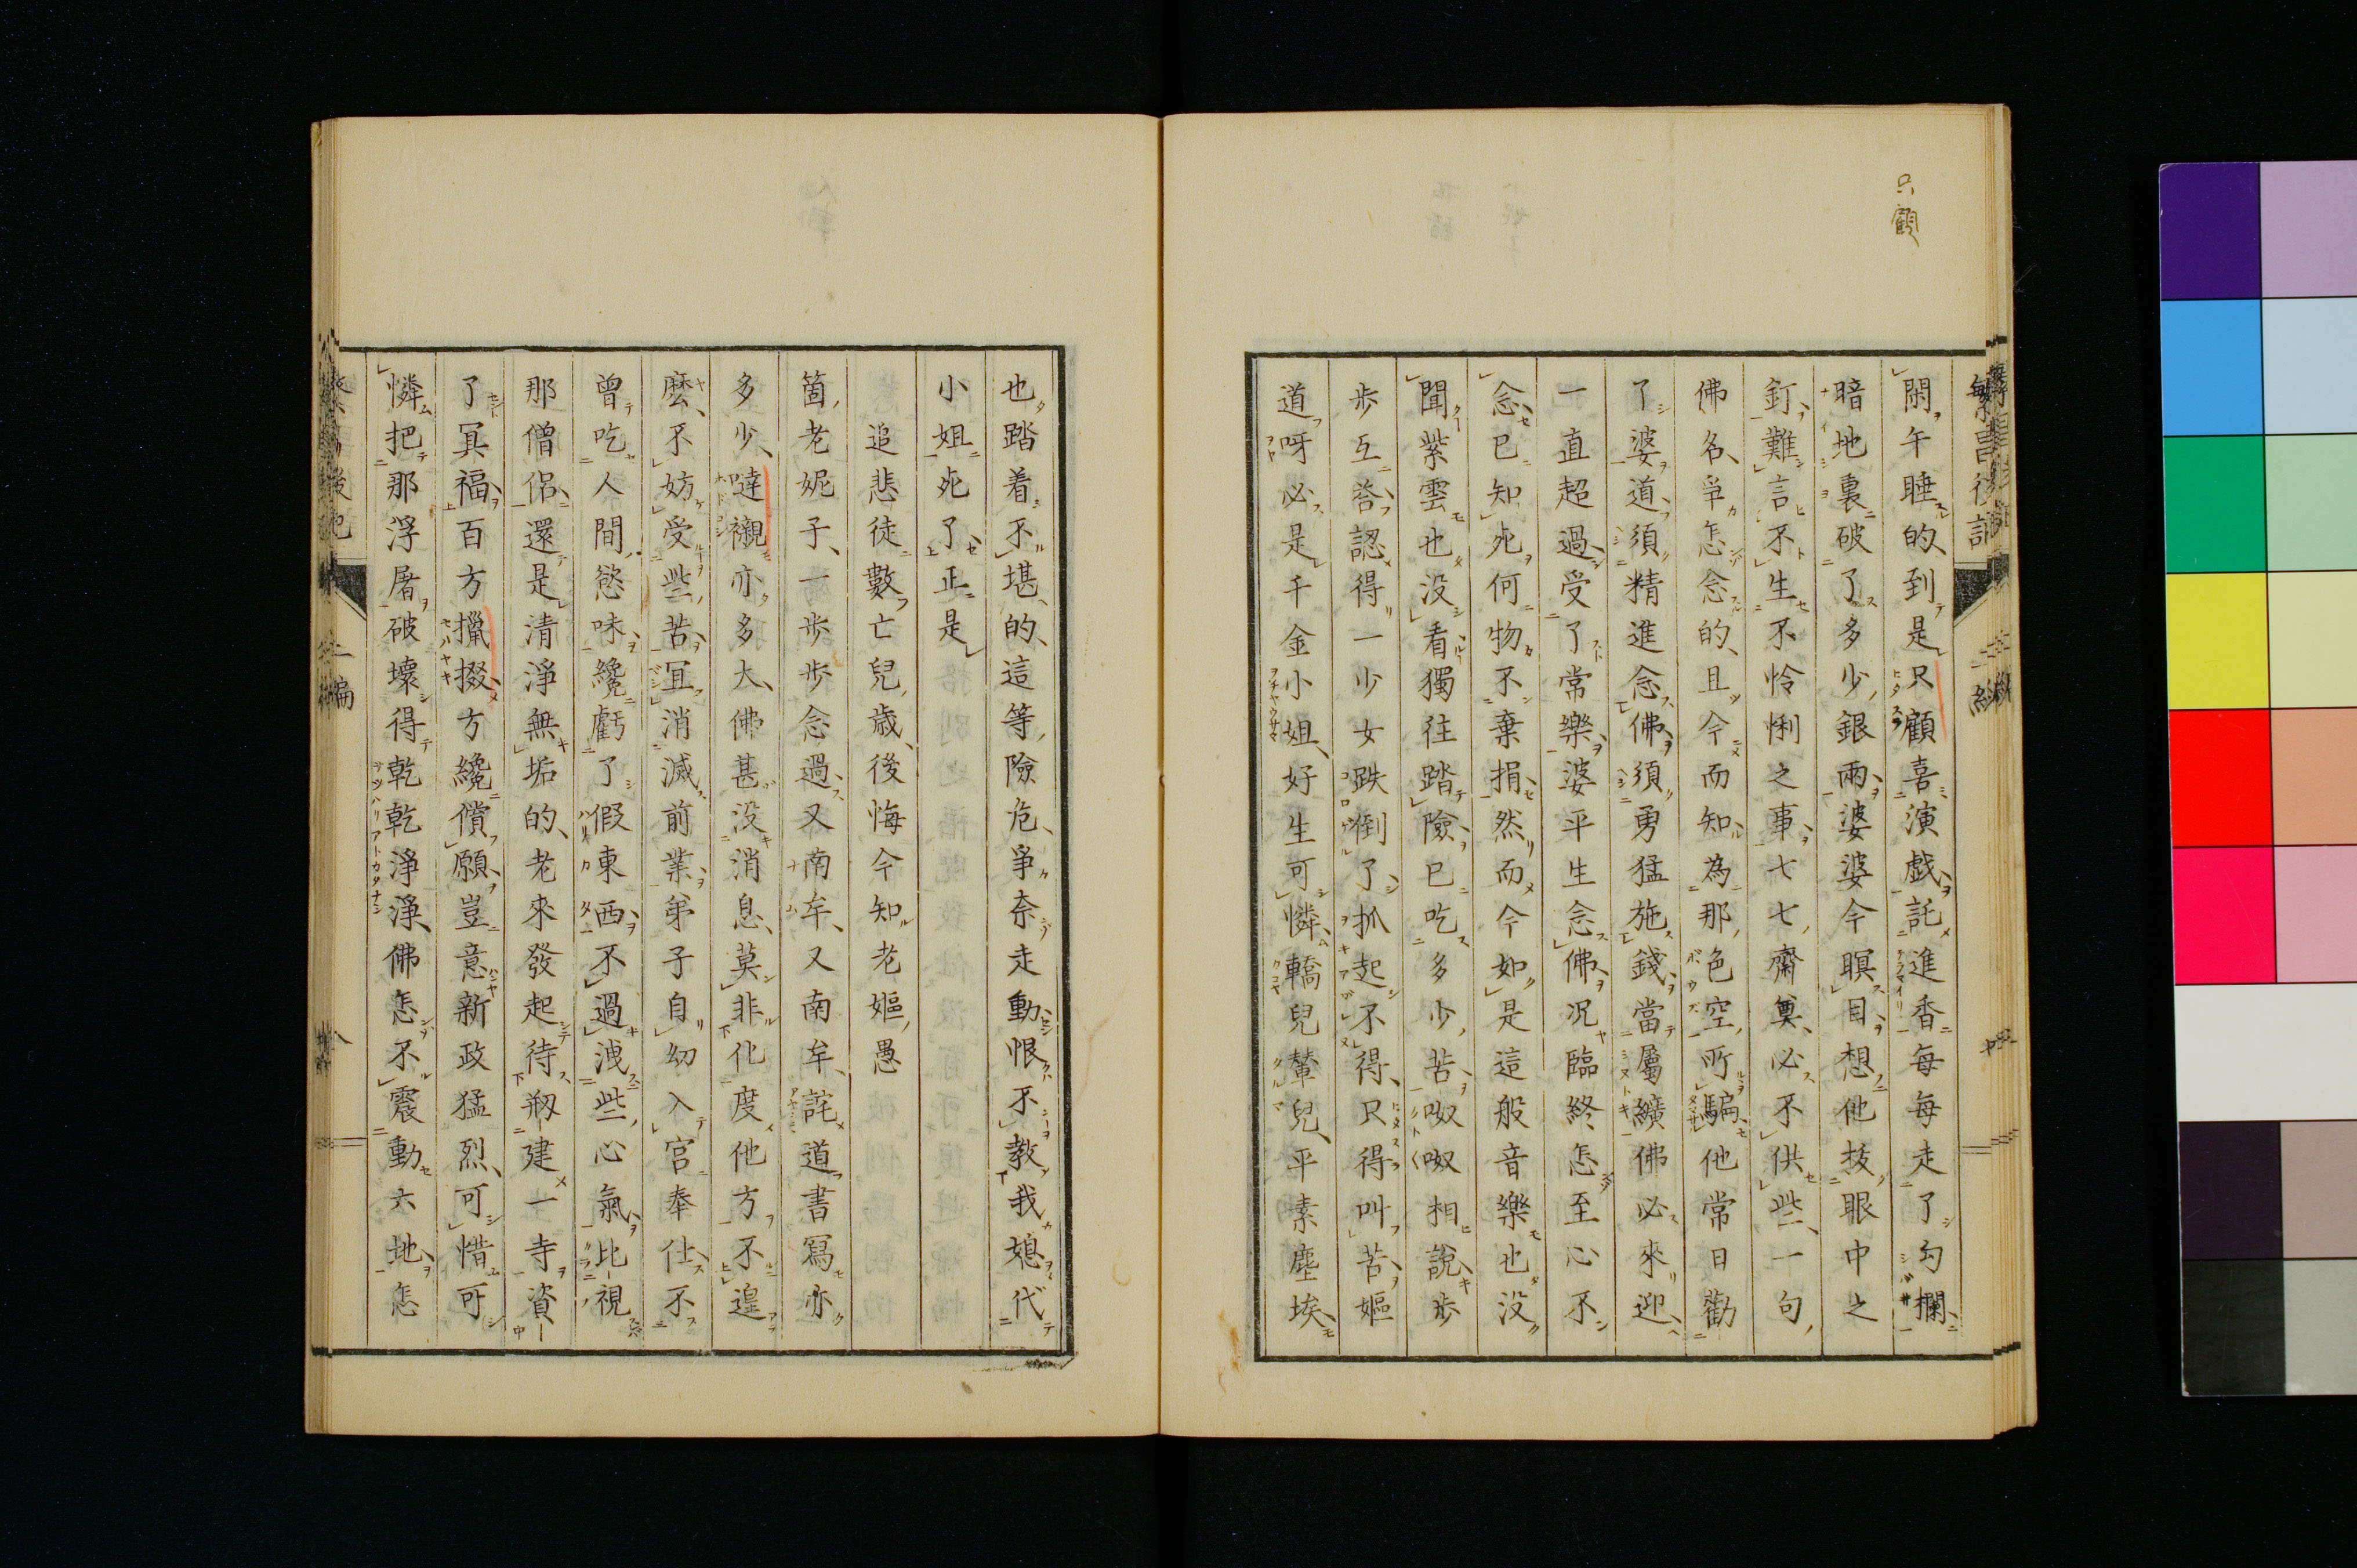 只顧
閑午睡的、到是只顧喜演戲、託進香每每走了勾欄、
暗地裏破了多少銀兩、婆婆今瞑目、想他技眼中之
釘、難言不生不怜悧之事、七七齋奠、必不供些、一句
佛名、争怎念的、且今而知、為那色空所騙、他常日勸
了婆道、須精進念佛、須勇猛施錢、當屬纊佛必來迎、
一直超過、受了常樂、婆平生念佛、况臨終怎至心不
念、已知死何物、不棄捐、然而今如是這般音樂也没
聞、紫雲也没看、獨往踏險、已吃多少苦、呶呶相說、步
步互荅、認得一少女跌倒了、抓起不得、只得叫苦、嫗
道呀必是千金小姐、好生可憐、轎兒輦兒、平素塵埃、
也踏着不堪的、這等險危、爭奈走動、恨不教我媳代
小姐死了、正是
追悲徒數亡兒歲、後悔今知老嫗愚
箇老妮子、一步步念過、又南牟、又南牟、詫道書寫亦
多少、噠襯亦多大、佛甚没消息、莫非化度他方、不遑
麽、不妨受些苦、冝消滅前業、弟子自幼入官奉仕、不
曾吃人間慾味、纔虧了假東西、不過洩些心氣、比視
那僧侶、還是清淨無垢的、老來發起、待剏建一寺、資
了冥福、百方擸掇、方纔償願、豈意新政猛烈、可惜可
憐、把那浮屠破壞得乾乾淨淨、佛怎不震動六地、怎